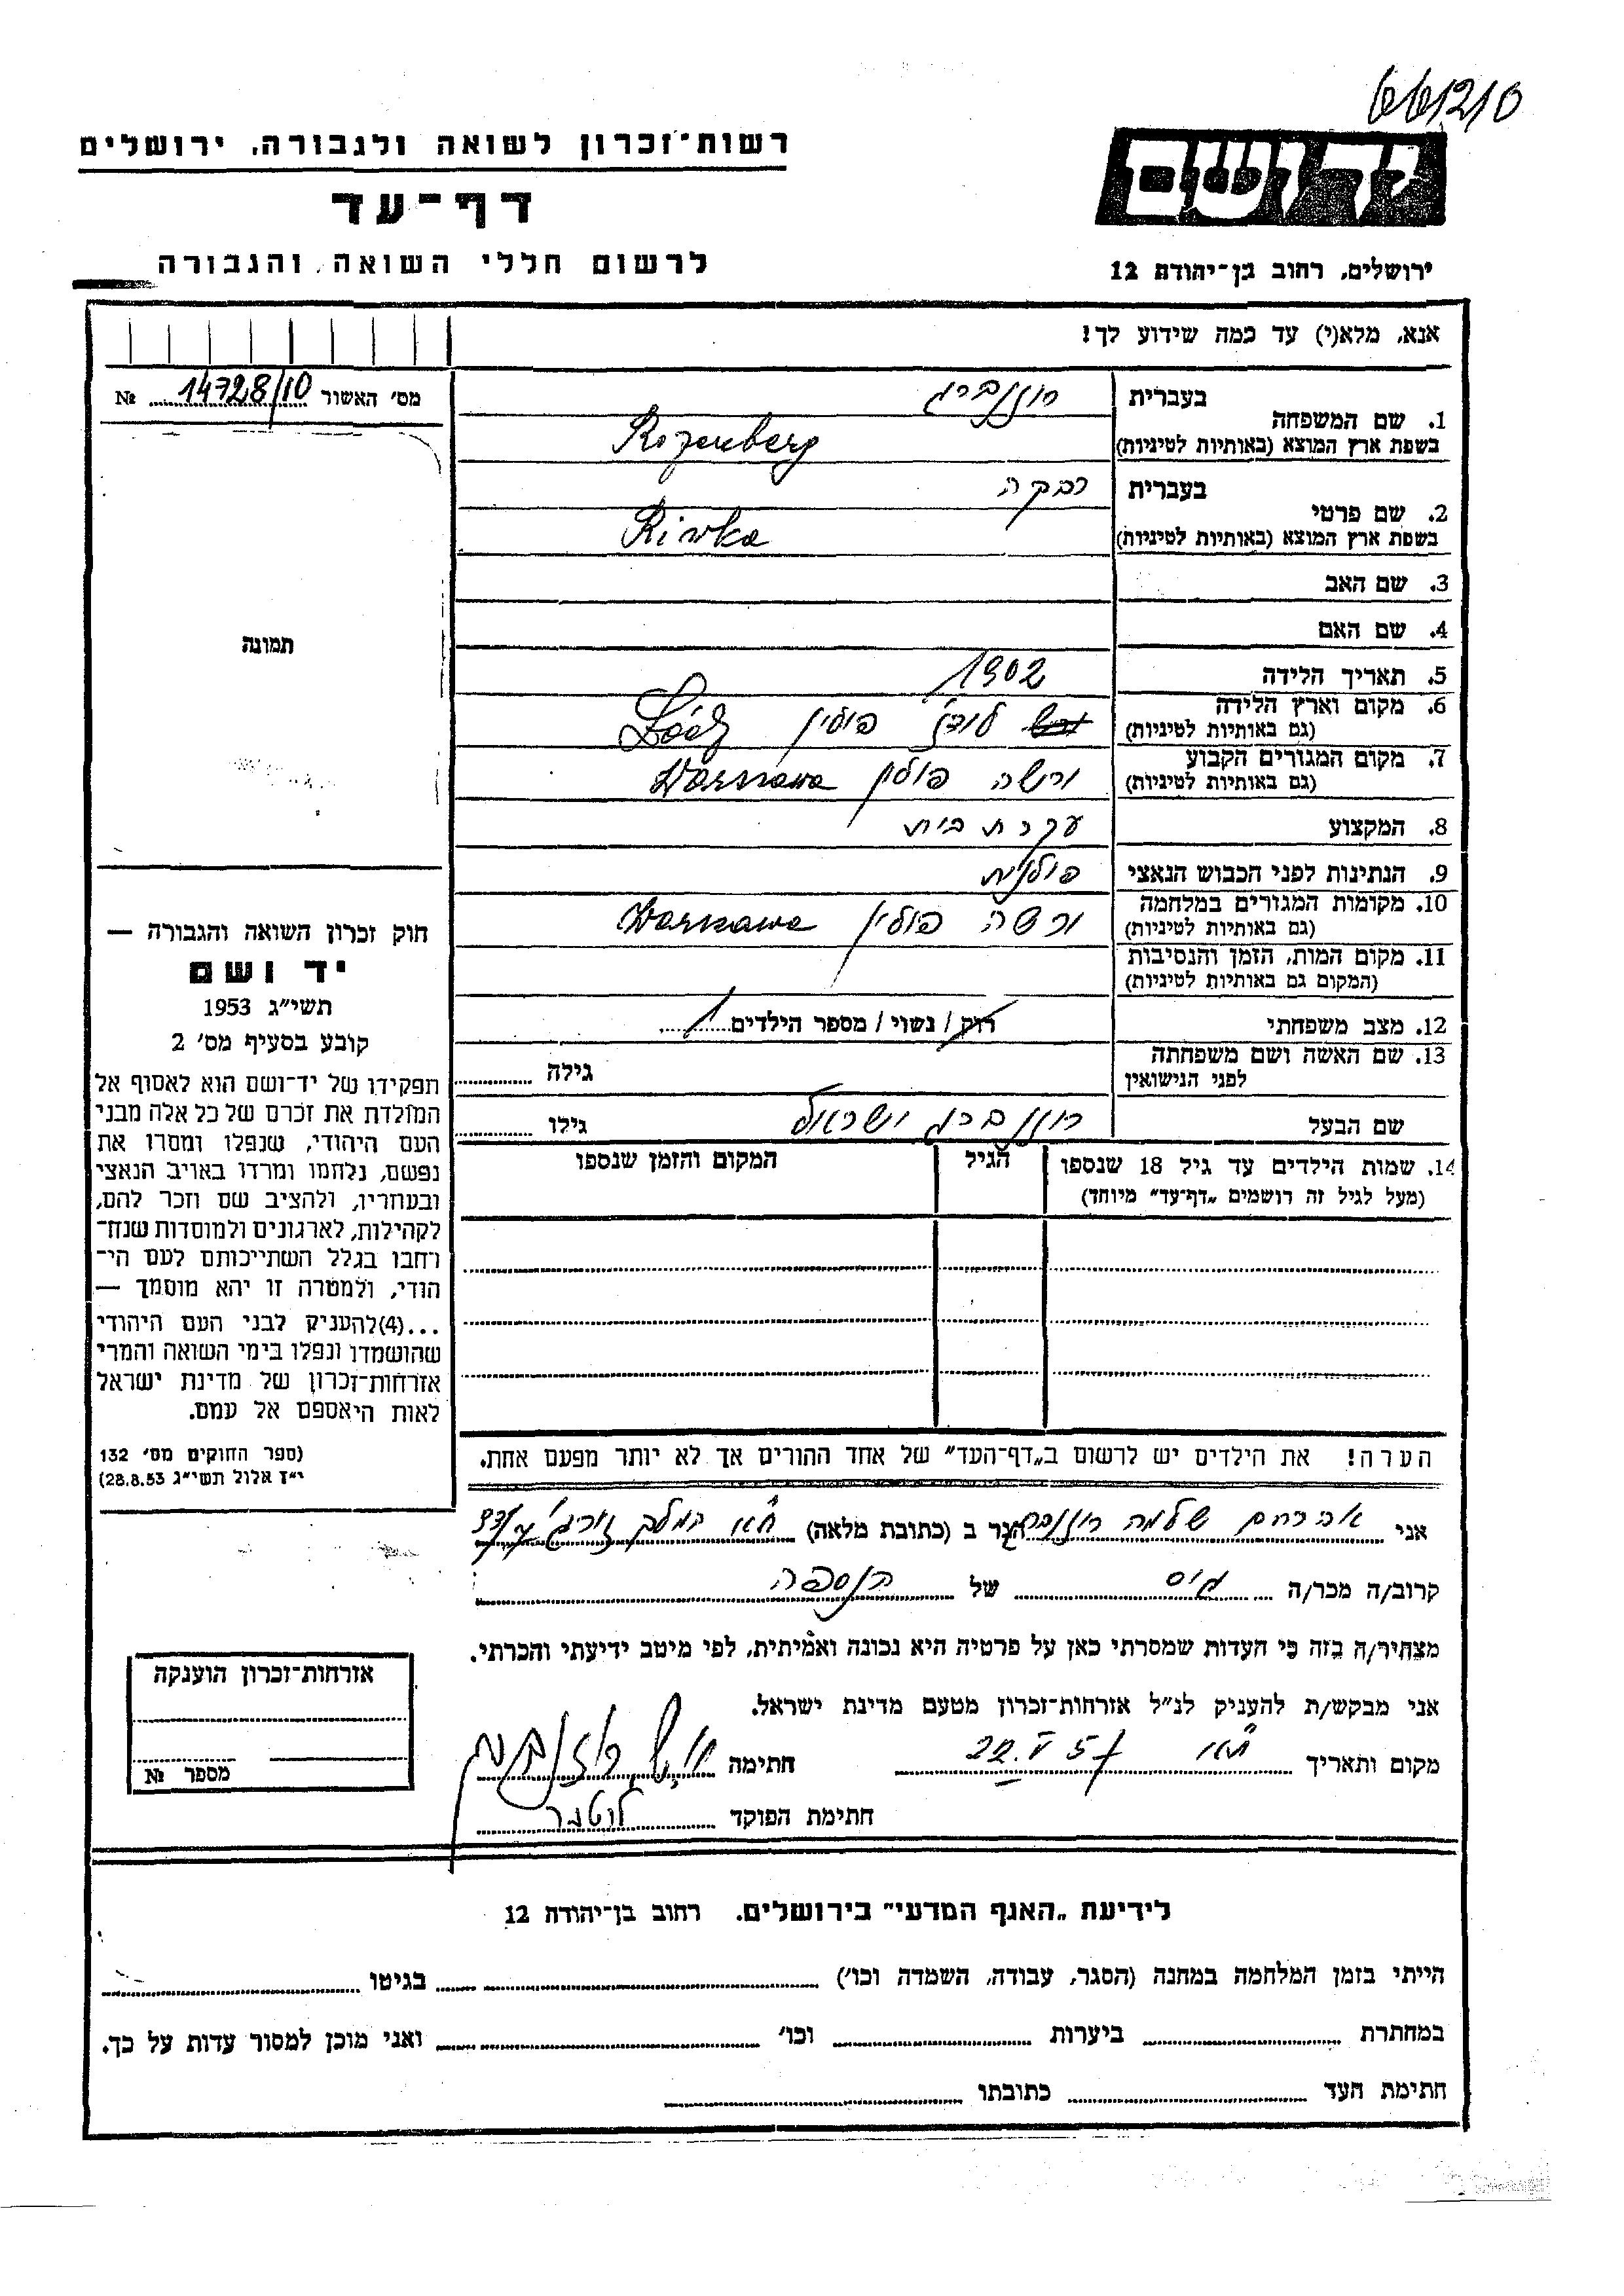 661210
רשות־זכרון לשואה ולגבורה, ירושלים
יד ושם
דף־עד
לרשום חללי השואה והגבורה
ירושלים, רחוב בן־יהודה 12
אנא, מלא(י) עד כמה שידוע לך!
מס׳ האשור № 14728/10
בעברית רוזנברג
1. שם המשפחה
בשפת ארץ המוצא (באותיות לטיניות) Rozenberg
בעברית רבקה
2. שם פרטי
בשפת ארץ המוצא (באותיות לטיניות) Riwka
3. שם האב
4. שם האם
תמונה
5. תאריך הלידה 1902
6. מקום וארץ הלידה
(גם באותיות לטיניות) לודז פולין Łódź
7. מקום המגורים הקבוע
(גם באותיות לטיניות) ורשה פולין Warszawa
8. המקצוע עקרת בית
9. הנתינות לפני הכבוש הנאצי פולנית
10. מקומות המגורים במלחמה
(גם באותיות לטיניות) ורשה פולין Warszawa
11. מקום המות, הזמן והנסיבות
(המקום גם באותיות לטיניות)
12. מצב משפחתי רווק / נשוי / מספר הילדים 1
13. שם האשה ושם משפחתה
לפני הנישואין גילה
שם הבעל רוזנברג ישראל גילו
14. שמות הילדים עד גיל 18 שנספו הגיל המקום והזמן שנספו
(מעל לגיל זה רושמים „דף־עד” מיוחד)
חוק זכרון השואה והגבורה —
יד ושם
תשי״ג 1953
קובע בסעיף מס׳ 2
תפקידו של יד־ושם הוא לאסוף אל
המולדת את זכרם של כל אלה מבני
העם היהודי, שנפלו ומסרו את
נפשם, נלחמו ומרדו באויב הנאצי
ובעוזריו, ולהציב שם וזכר להם,
לקהילות, לארגונים ולמוסדות שנח־
רחבו בגלל השתייכותם לעם הי־
הודי, ולמטרה זו יהא מוסמך —
...(4) להעניק לבני העם היהודי
שהושמדו ונפלו בימי השואה והמרי
אזרחות־זכרון של מדינת ישראל
לאות היאספם אל עמם.
(ספר החוקים מס׳ 132
י״ז אלול תשי״ג 28.8.53)
הערה! את הילדים יש לרשום ב„דף־העד” של אחד ההורים אך לא יותר מפעם אחת.
אני אברהם שלמה רוזנברג הגר ב (כתובת מלאה) ת״א המלך ג׳ורג׳ 33
קרוב/ה מכר/ה גיס של הנספה
מצהיר/ה בזה כי העדות שמסרתי כאן על פרטיה היא נכונה ואמיתית, לפי מיטב ידיעתי והכרתי.
אני מבקש/ת להעניק לנ״ל אזרחות־זכרון מטעם מדינת ישראל.
מקום ותאריך ת״א 22.V 57 חתימה א. ש. רוזנברג
חתימת הפוקד
אזרחות־זכרון הוענקה
מספר №
לידיעת „האגף המדעי” בירושלים, רחוב בן־יהודה 12
הייתי בזמן המלחמה במחנה (הסגר, עבודה, השמדה וכו׳) בגיטו
במחתרת ביערות וכו׳ ואני מוכן למסור עדות על כך.
חתימת העד כתובתו